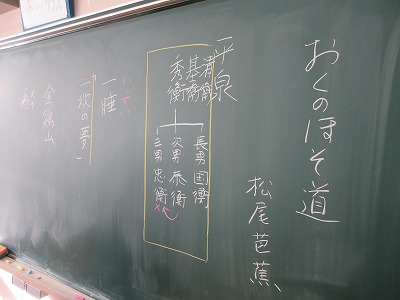 おくのほそ道
松尾芭蕉
平泉
清衡
基衡
秀衡
長男国衡
次男泰衡
三男忠衡
いっすい
一睡
「一炊の夢」
金鶏山